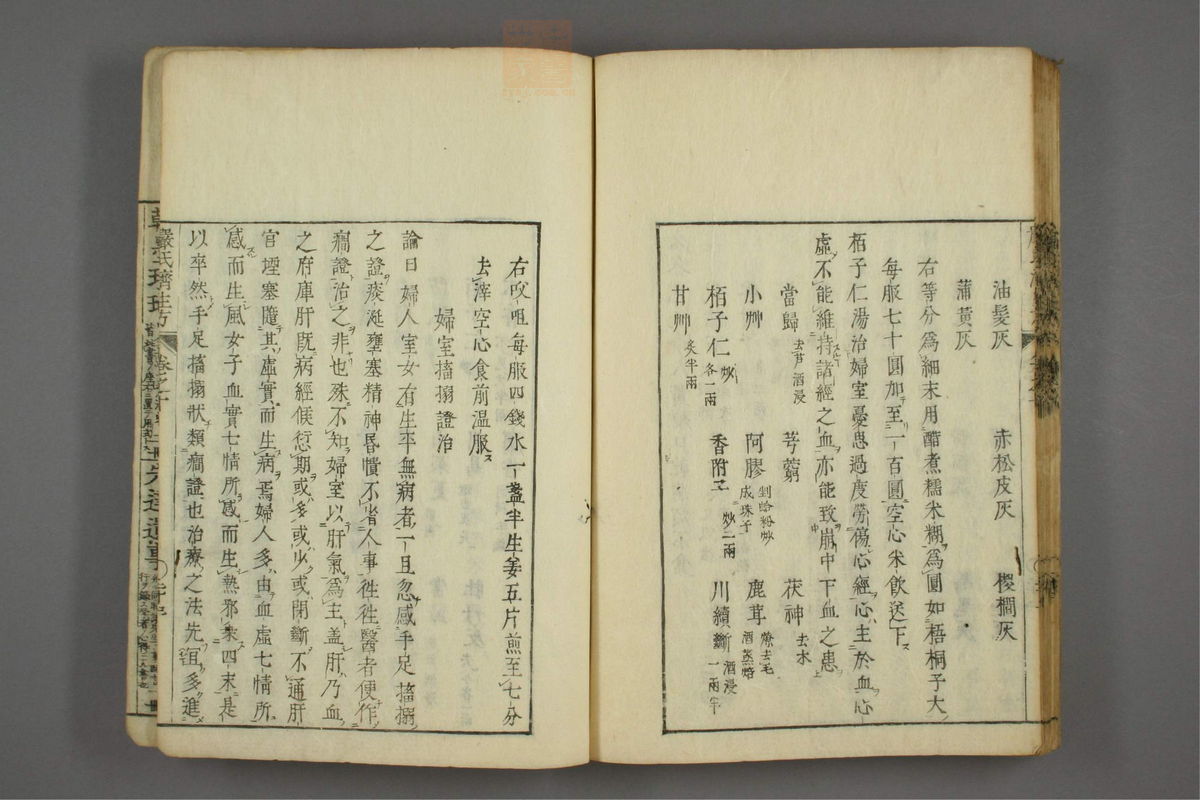 油髮灰　赤松皮灰　椶櫚灰
蒲黃灰
右等分爲細末用醋煮糯米糊爲圓如梧桐子大
每服七十圓加至一百圓空心米飲送下
栢子仁湯治婦室憂思過度勞傷心經心主於血心
虛不能維持諸經之血亦能致崩中下血之患
當歸去芦酒浸　芎藭　茯神去木
小艸　阿膠剉蛤粉炒成珠子　鹿茸燎去毛酒蒸焙
栢子仁炒各一兩　香附子炒二兩　川續斷酒浸一兩半
甘艸炙半兩
右㕮咀每服四錢水一盞半生姜五片煎至七分
去滓空心食前温服
婦室搐搦證治
論曰婦人室女有生平無病者一旦忽感手足搐搦
之證痰涎壅塞精神昏憒不省人事徃徃醫者便作
癎證治之非也殊不知婦室以肝氣爲主盖肝乃血
之府庫肝既病經候愆期或多或少或閉斷不通肝
官堙塞隨其虛實而生病焉婦人多由血虛七情所
感而生風女子血實七情所感而生熱邪乘四末是
以卒然手足搐搦狀類癎證也治療之法先宜多進
嚴氏濟生方